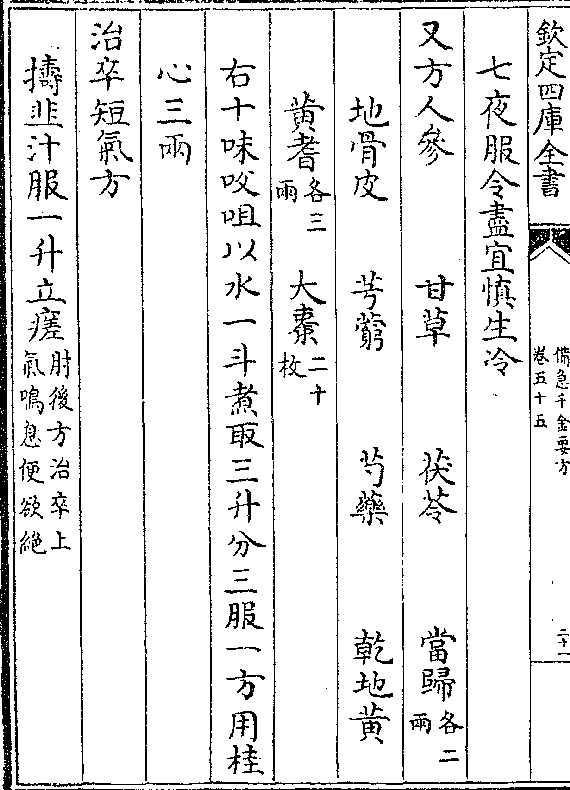 欽定四庫全書
備急千金要方
卷五十五
二十一
七夜服令盡宜慎生冷
又方人參　甘草　茯苓　當歸各二兩
地骨皮　芎藭　芍藥　乾地黃
黃耆各三兩　大棗二十枚
右十味㕮咀以水一斗煮取三升分三服一方用桂
心三兩
治卒短氣方
擣韭汁服一升立瘥肘後方治卒上氣鳴息便欲絶